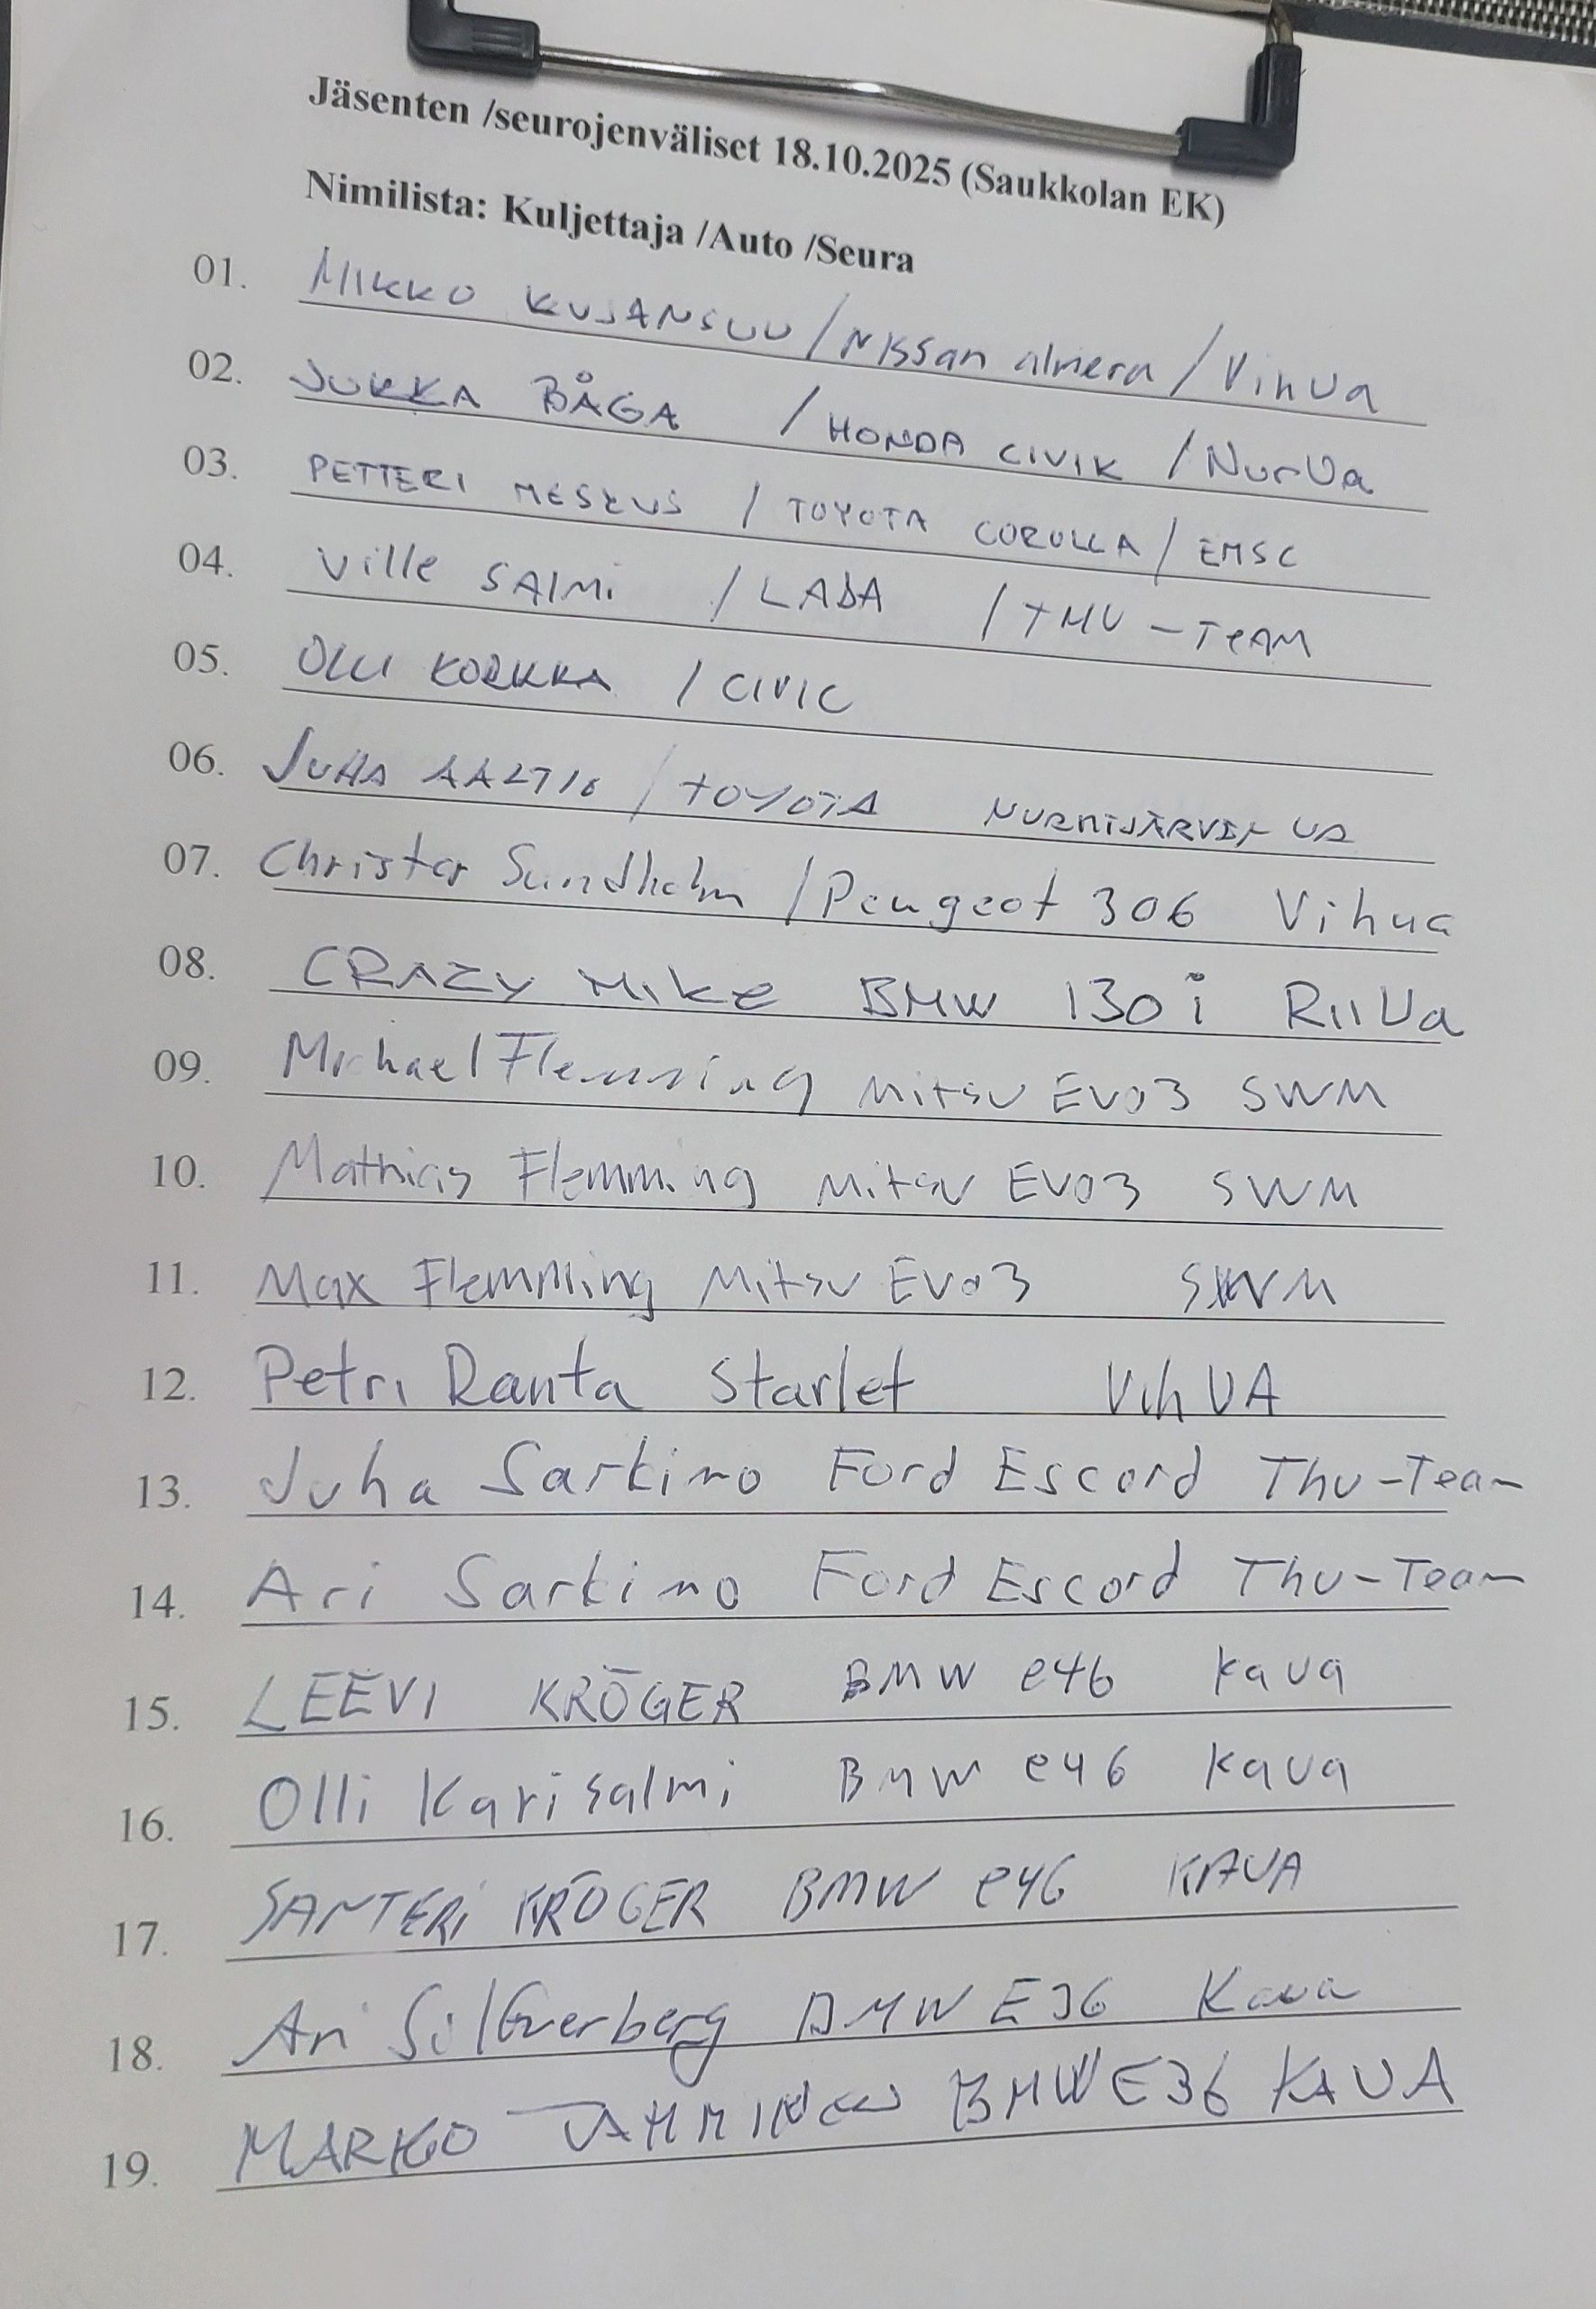 Jäsenten /seurojenväliset 18.10.2025 (Saukkolan EK)
Nimilista: Kuljettaja /Auto /Seura
01. MIKKO KUJANSUU / Nissan almera / VihUa
02. JUKKA BÅGA / HONDA CIVIK / NurUa
03. PETTERI MESKUS / TOYOTA COROLLA / EMSC
04. Ville SALMi / LADA / THU - TeAM
05. OLLI KORKKA / CIVIC
06. JUHA AALTIO / TOYOTA NURMIJÄRVEN UA
07. Christer Sundholm / Peugeot 306 Vihua
08. CRAZY MIKE BMW 130i RiiUa
09. Michael Flemming Mitsu EVO3 SWM
10. Mathias Flemming Mitsu EVO3 SWM
11. Max Flemming Mitsu EVO3 SWM
12. Petri Ranta Starlet VihUA
13. Juha Sarkimo Ford Escord Thu-Team
14. Ari Sarkimo Ford Escord Thu-Team
15. LEEVI KRÖGER BMW e46 kaua
16. Olli Karisalmi BMW e46 kaua
17. SANTERi KRÖGER BMW e46 KAUA
18. Ari Silfverberg BMW E36 Kaua
19. MARKO BMW E36 KAUA